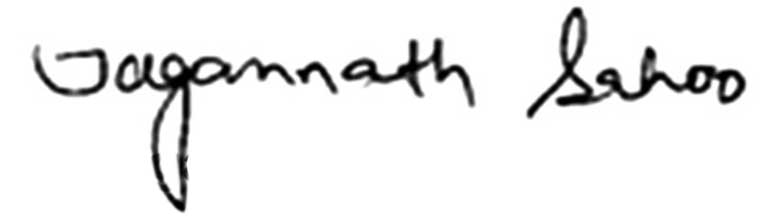 Jagannath Sahoo